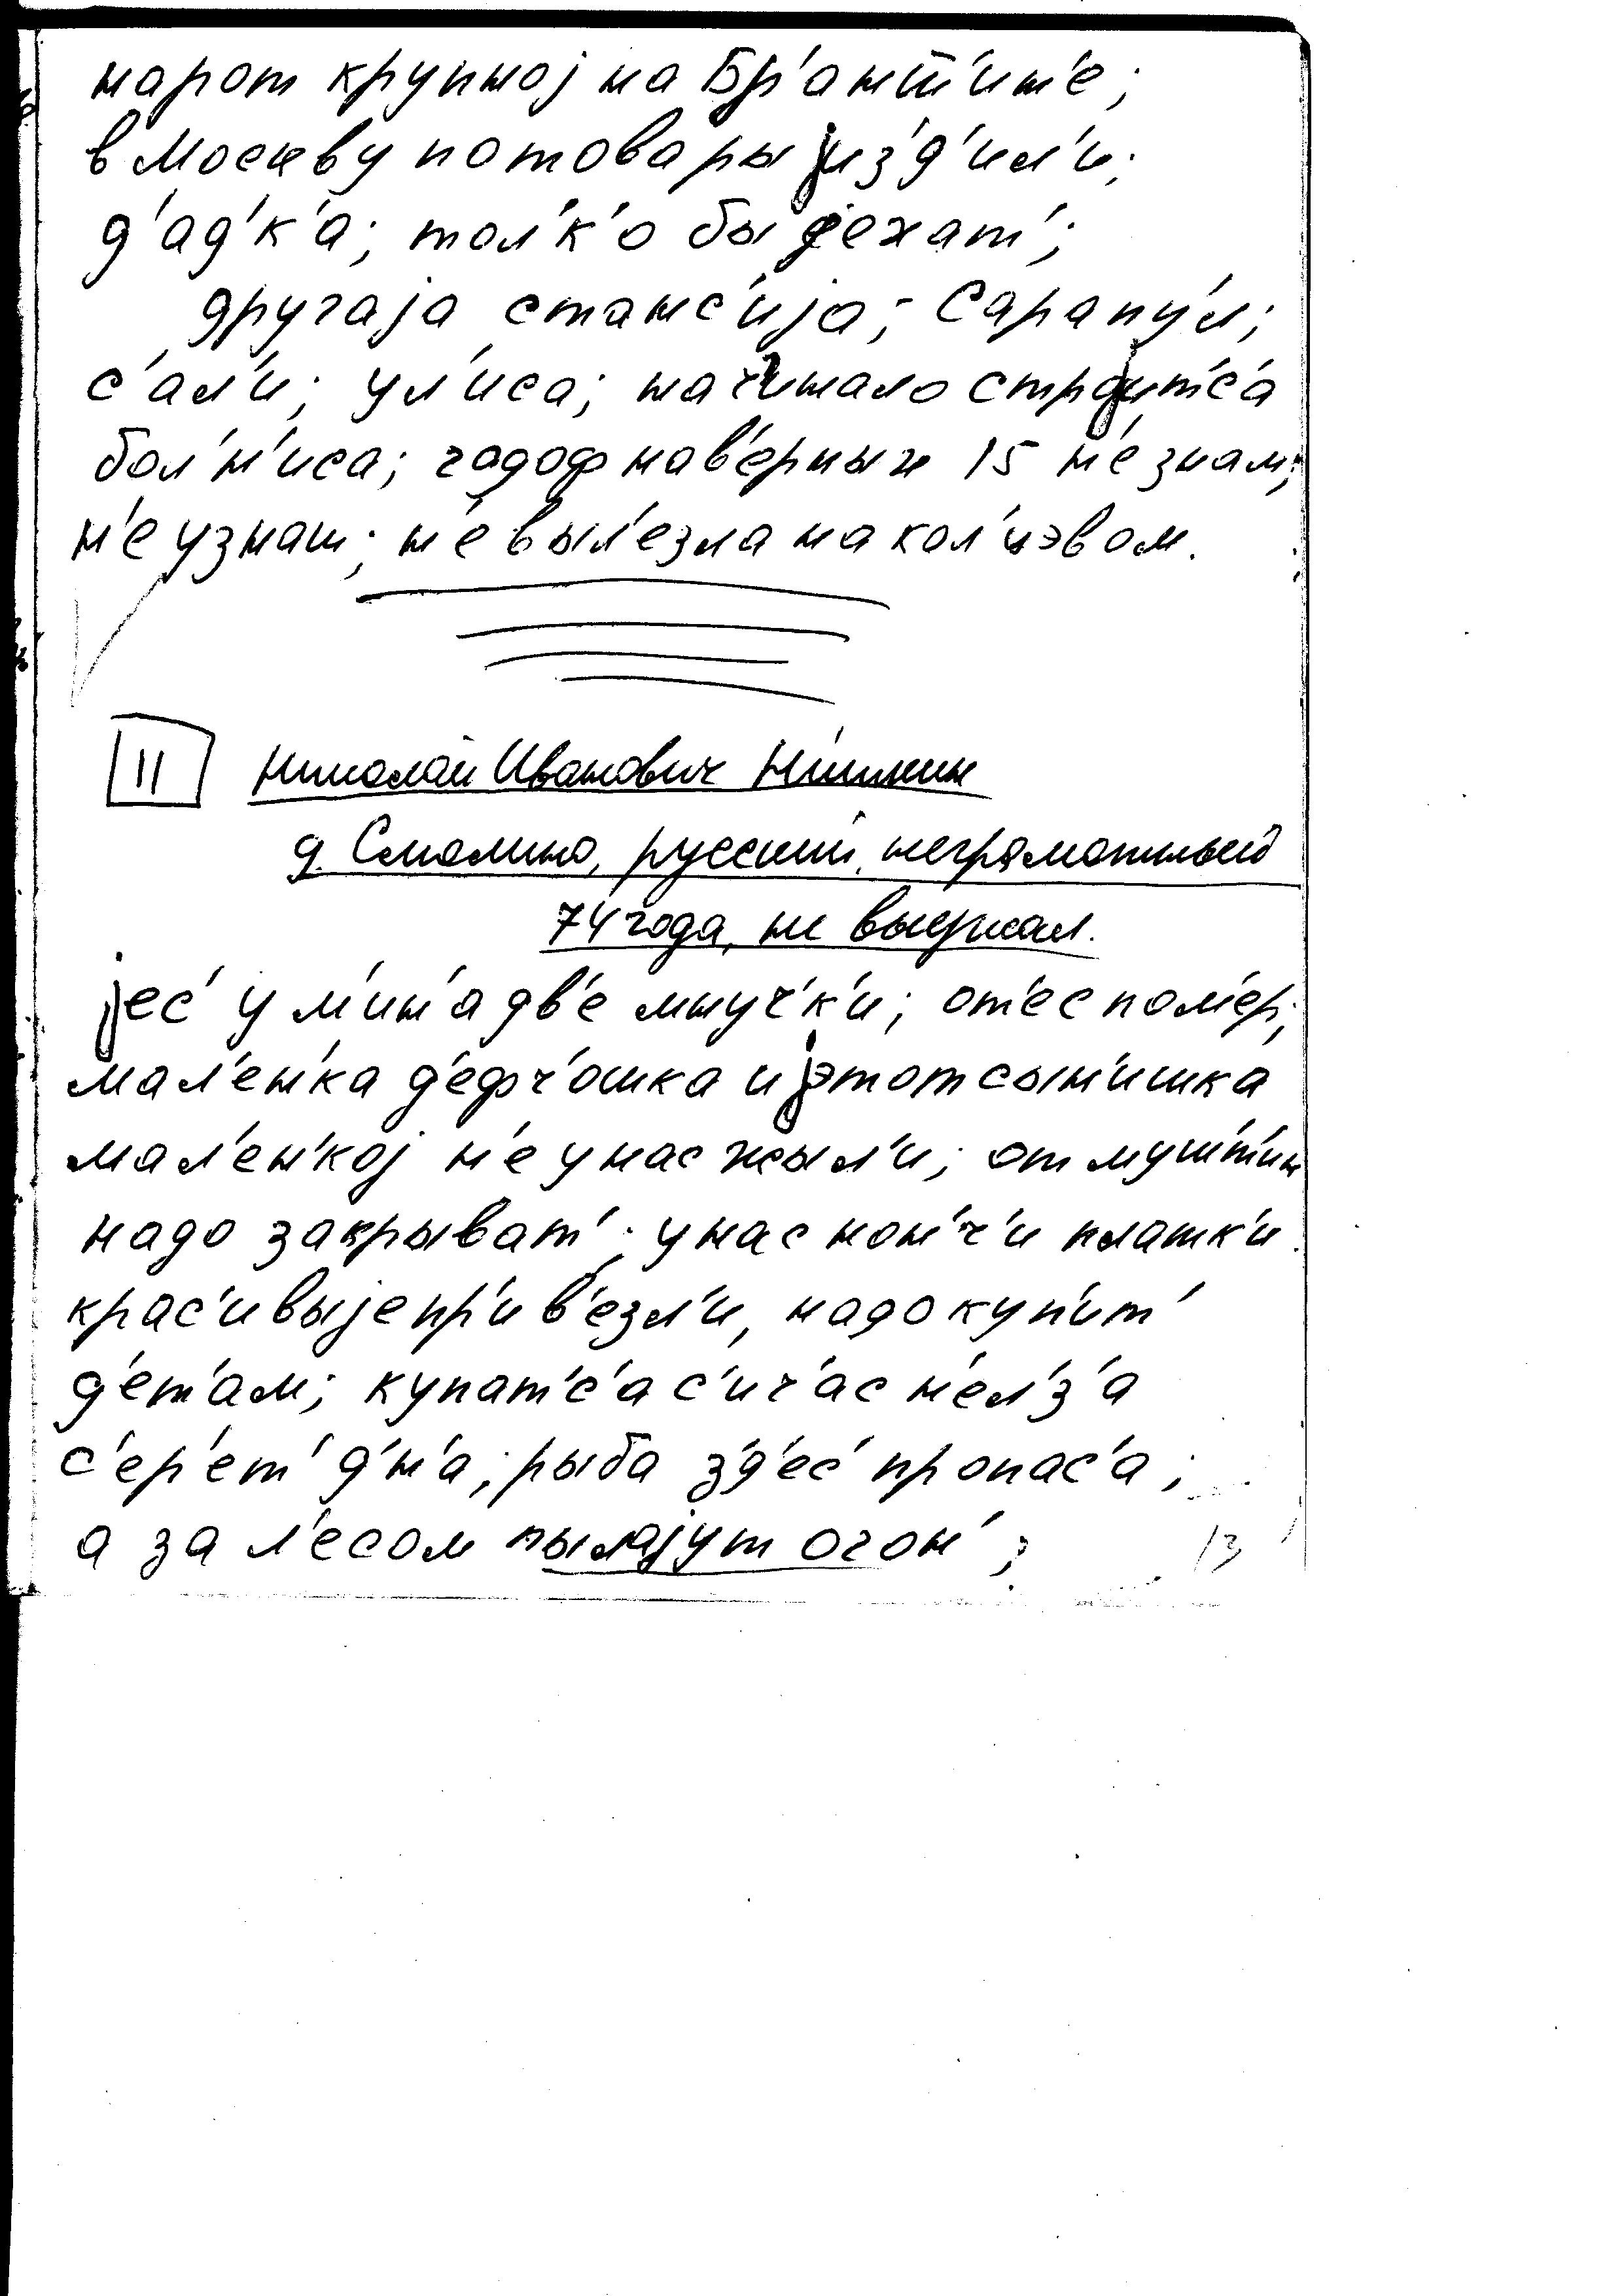 нарот крупној на Бр'ант'ин'е;
в Москву потовары јиз'д'ил'и;
д'ад'к'а; тол'к'о бы јехат';
другаја станс'ија; Сарапул;
с'ал'и; ул'иса; начинало стројит'с'а
бол'н'иса; годоф нав'ерных 15 н'е знам;
н'е узнаш; н'е выл'езла на кол'цэвом.
11 Николай Иванович
д. Смолино, русский, неграмотный
74 года, не выезжал.
јес' у м'ин'а дв'е мнуч'к'и; от'ес пом'ер;
мал'ен'ка д'ефч'ошка и јэтот сын'ишка
мал'ен'кој н'е у нас жыл'и; от мушт'ин
надо закрыват'; у нас нон'ч'и платк'и
крас'ивыје пр'ив'езл'и, надо куп'ит'
д'ет'ам; купат'с'а с'ич'ас н'ел'з'а
с'ер'ет' д'н'а; рыба з'д'ес' пропас'а;
а за л'есом пылајут огон';
13